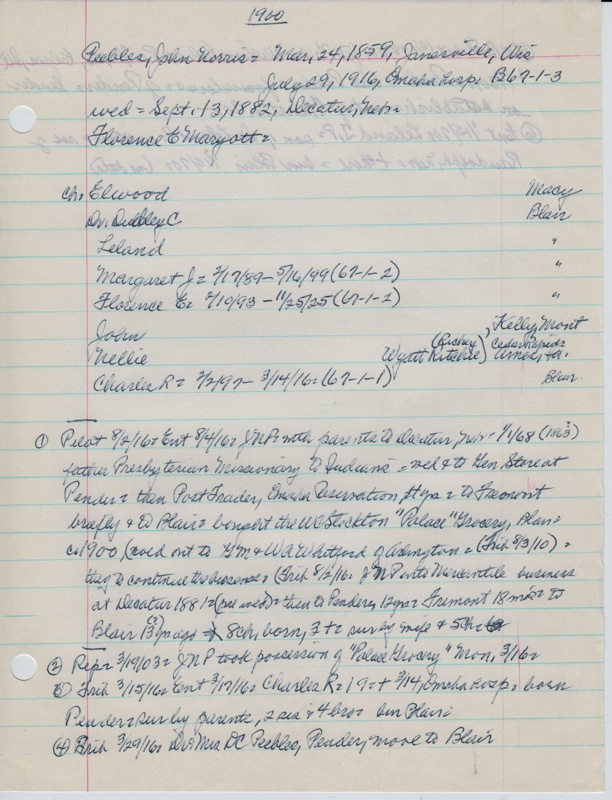 1960
Peebles, John Norris = Mar, 24, 1859, Janesville, Wis
July 29, 1916, Omaha Hosp. B67-1-3
wed = Sept. 13, 1882, Decatur, Nebr =
Florence E Maryott =
ch. Elwood Macy
Dr. Dudley C Blair
Leland "
Margaret J = 2/17/89 - 5/16/99 (67-1-2) "
Florence E = 2/19/93 - 11/25/25 (67-1-2) "
John , Kelly, Mont
Nellie Wyatt Ritchie) Cedar Rapids
Ames, Ia.
Charles R = 2/2/97 - 3/14/16 = (67-1-1) Blair
① Pilot 8/2/16 = Ent 8/4/16 = JNP = with parents to Decatur, Nebr = 1/1/68 (1863?)
father Presbyterian Missionary to Indians = wed & to Gen. Store at
Pender = then Post Trader, Omaha Reservation, yrs = to Fremont
briefly & to Blair = bought the WC Stockton "Palace" Grocery, Blair =
c. 1900, (sold out to GM & WA Whitford of Arlington = (Trib 8/3/10) =
they to continue the business = (Trib 8/2/16 = JNP into Mercantile business
at Decatur 1881 = (pre wed) = then to Pender, 12 yrs = Fremont 18 mos = to
Blair yrs ago = 8 ch. born, 3 + = sur by wife & 5 ch
② Rep = 3/19/03 = JNP took possession of "Palace Grocery" Mon, 3/16 =
③ Trib 3/15/16 = Ent 3/17/16 = Charles R = 19 = + 3/14, Omaha hosp = born
Pender = sur by parents, 2 sis & 4 bro = bur Blair
④ Trib 3/29/16 = Dr & Mrs DC Peebles, Pender, move to Blair